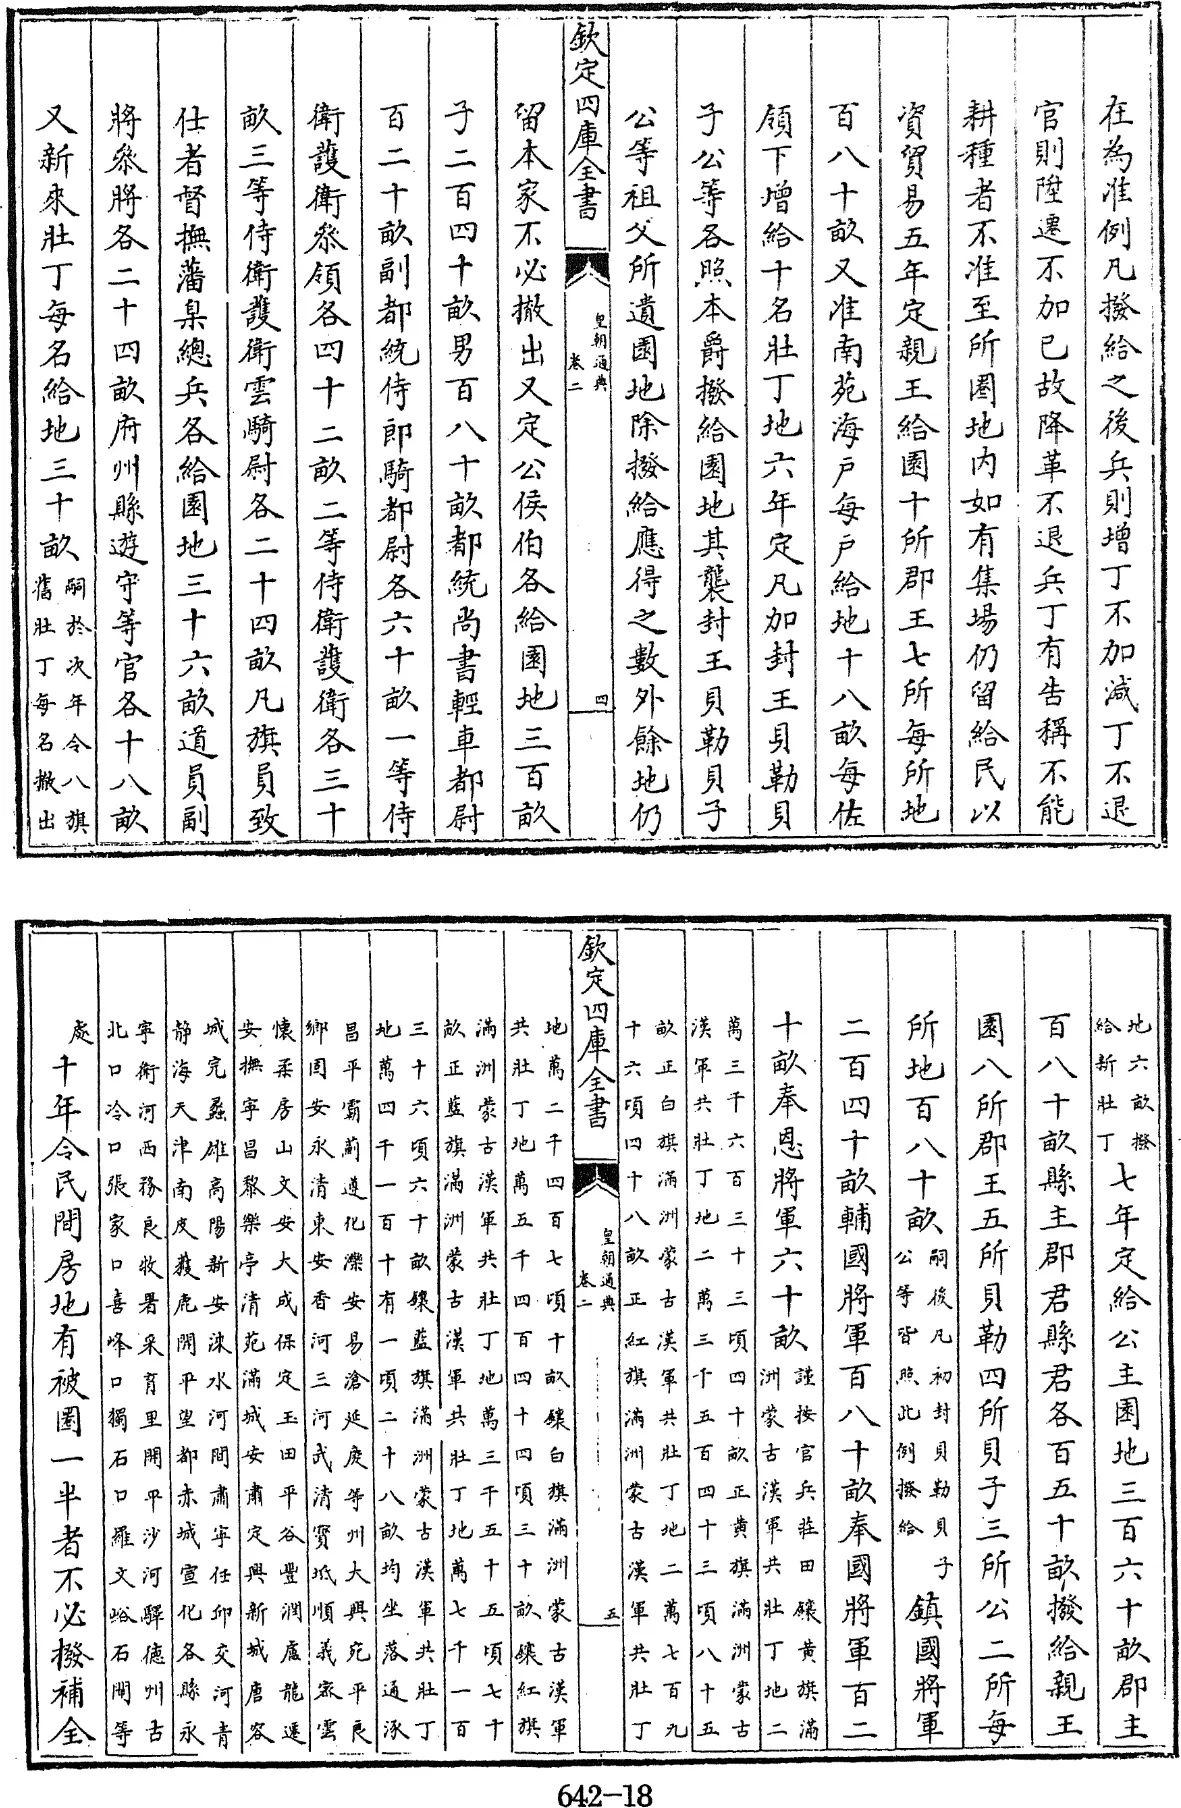 在為准例凡撥給之後兵則增丁不加減丁不退
官則陞遷不加已故降革不退兵丁有告稱不能
耕種者不准至所圈地内如有集場仍留給民以
資貿易五年定親王給園十所郡王七所每所地
百八十畝又准南苑海戶每戶給地十八畝每佐
領下增給十名壯丁地六年定凡加封王貝勒貝
子公等各照本爵撥給園地其襲封王貝勒貝子
公等祖父所遺園地除撥給應得之數外餘地仍
欽定四庫全書
皇朝通典
卷二
四
留本家不必撤出又定公侯伯各給園地三百畝
子二百四十畝男百八十畝都統尚書輕車都尉
百二十畝副都統侍郎騎都尉各六十畝一等侍
衛護衛叅領各四十二畝二等侍衛護衛各三十
畝三等侍衛護衛雲騎尉各二十四畝凡旗員致
仕者督撫藩臬總兵各給園地三十六畝道員副
將叅將各二十四畝府州縣遊守等官各十八畝
又新來壯丁每名給地三十畝
嗣於次年令八旗
舊壯丁每名撤出
地六畝撥
給新壯丁
七年定給公主園地三百六十畝郡主
百八十畝縣主郡君縣君各百五十畝撥給親王
園八所郡王五所貝勒四所貝子三所公二所每
所地百八十畝
嗣後凡初封貝勒貝子
公等皆照此例撥給
鎮國將軍
二百四十畝輔國將軍百八十畝奉國將軍百二
十畝奉恩將軍六十畝
謹按官兵莊田鑲黃旗滿
洲蒙古漢軍共壯丁地二
萬三千六百三十三頃四十畝正黃旗滿洲蒙古
漢軍共壯丁地二萬三千五百四十三頃八十五
畝正白旗滿洲蒙古漢軍共壯丁地二萬七百九
十六頃四十八畝正紅旗滿洲蒙古漢軍共壯丁
欽定四庫全書
皇朝通典
卷二
五
地萬二千四百七頃十畝鑲白旗滿洲蒙古漢軍
共壯丁地萬五千四百四十四頃三十畝鑲紅旗
滿洲蒙古漢軍共壯丁地萬三千五十五頃七十
畝正藍旗滿洲蒙古漢軍共壯丁地萬七千一百
三十六頃六十畝鑲藍旗滿洲蒙古漢軍共壯丁
地萬四千一百十有一頃二十八畝均坐落通涿
昌平霸薊遵化灤安易滄延慶等州大興宛平良
鄉固安永清東安香河三河武清寶坻順義密雲
懷柔房山文安大成保定玉田平谷豐潤盧龍遷
安撫寧昌黎樂亭清苑滿城安肅定興新城唐容
城完蠡雄高陽新安淶水河間肅寧任邱交河青
靜海天津南皮獲鹿開平望都赤城宣化各縣永
寧衛河西務良牧署采育里開平沙河驛德州古
北口冷口張家口喜峰口獨石口羅文峪石閘等
處
十年令民間房地有被圈一半者不必撥補全
642-18